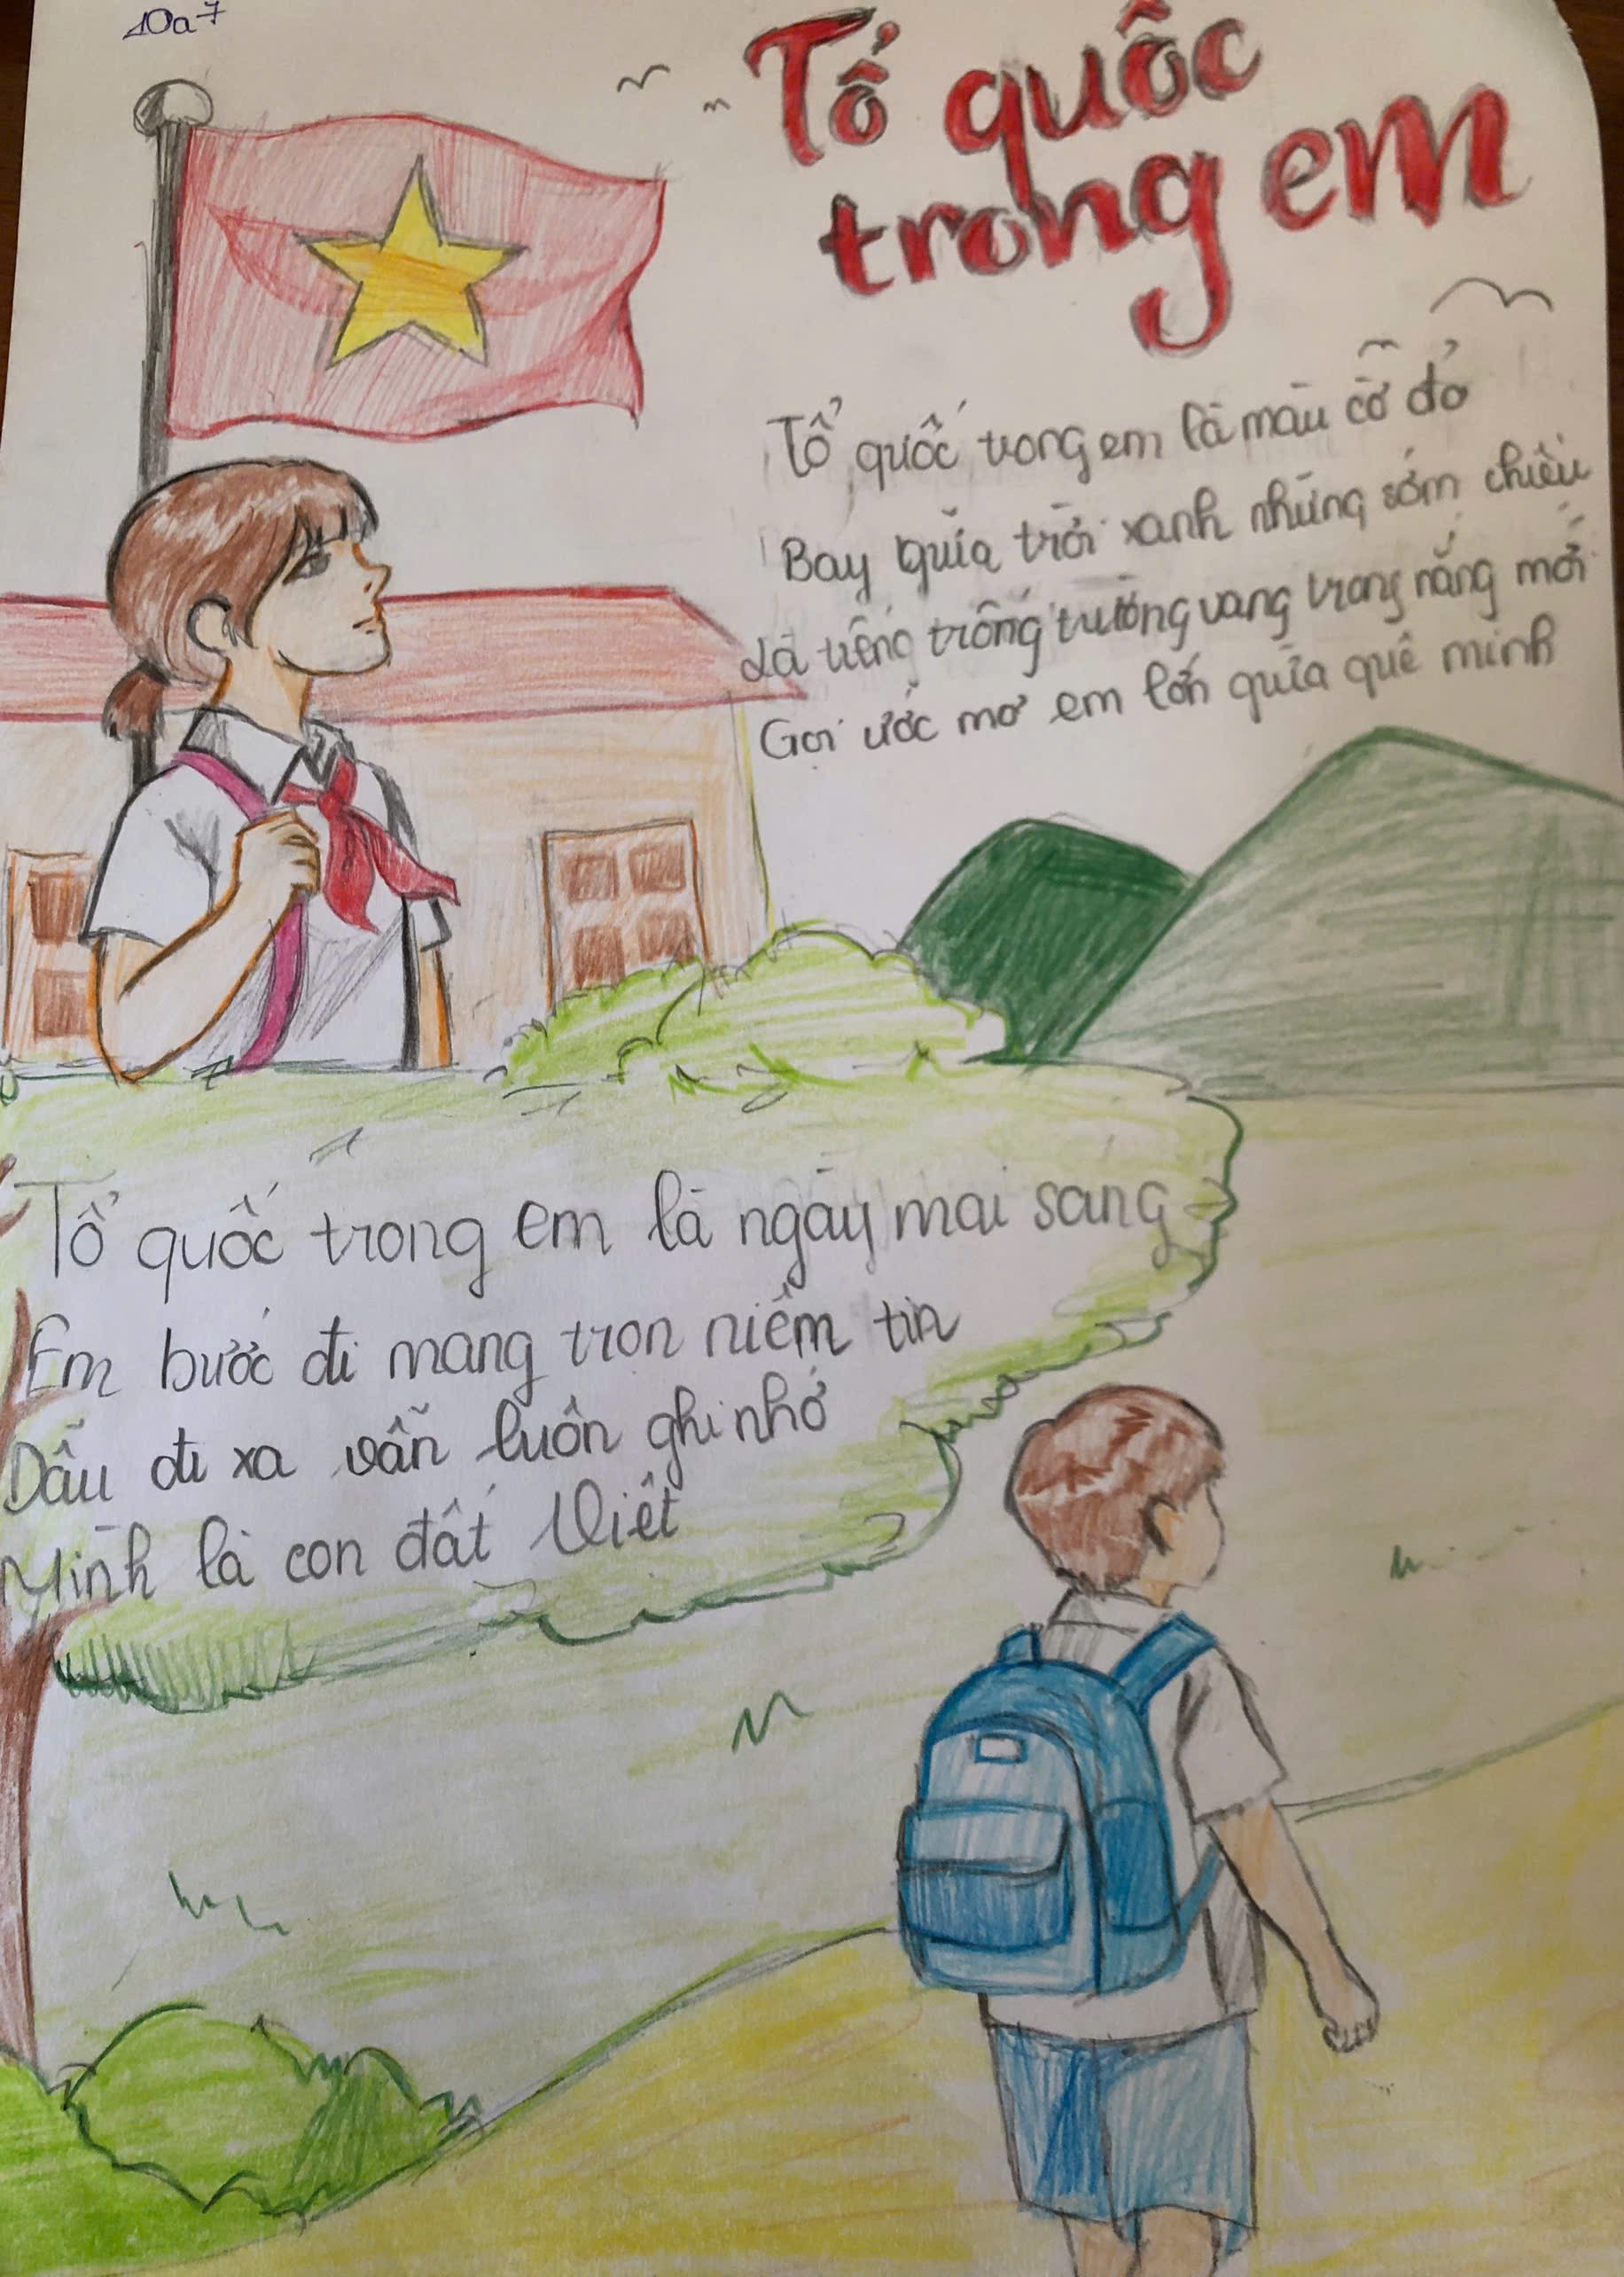 10a7
Tổ quốc
trong em
Tổ quốc trong em là màu cờ đỏ
Bay giữa trời xanh những sớm chiều
Là tiếng trống trường vang trong nắng mới
Gọi ước mơ em lớn giữa quê mình
Tổ quốc trong em là ngày mai sáng
Em bước đi mang trọn niềm tin
Dẫu đi xa vẫn luôn ghi nhớ
Mình là con đất Việt